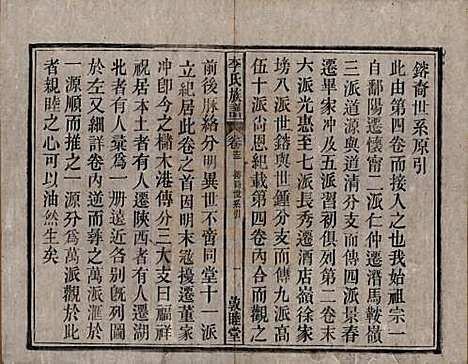 鎔裔世系原引
此由第四卷而接入之也我始祖宗一
自鄱陽遷懷甯二派仁仲遷潛馬鞍嶺
三派道源與道清分支而傳四派景春
畢家冲及五派習初俱列第二卷末
六派光惠至七派長秀遷酒店嶺徐家
塝八派世鎔與世鍾分支而傳九派高
伍十派尚恩紀載第四卷內合而合之
李氏族譜
卷之三
鎔裔世系引
一
敦睦堂
前後脉絡分明異世不啻同堂十一派
立紀居此卷之首因明末寇擾遷童家
冲即今之橚木港傳分三大支曰福祥
祝居本土者有人遷陝西者有人遷湖
北者有人彚爲一册於各別旣列圖
於左又細詳卷內逆而彛之萬派滙於
一源順而推之一源分爲萬派觀於此
者親睦之心可以油然生矣